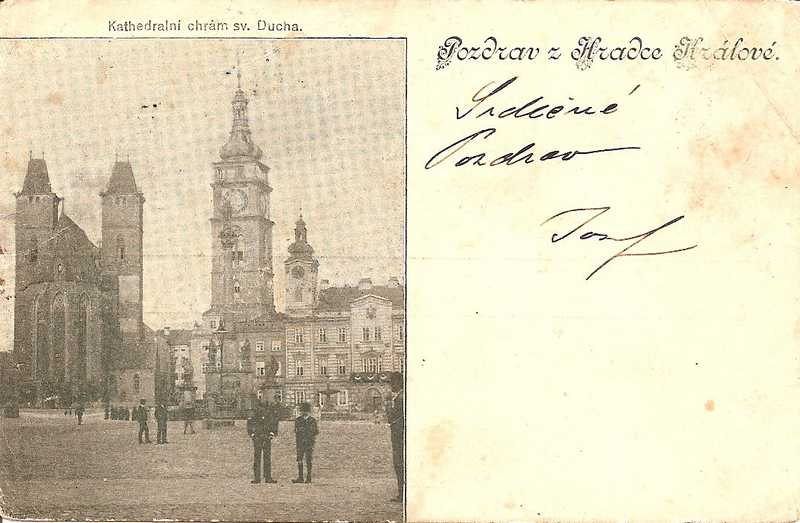 Kathedralní chrám sv. Ducha.
Pozdrav z Hradce Králové.
Srdečné
Pozdrav
Josef